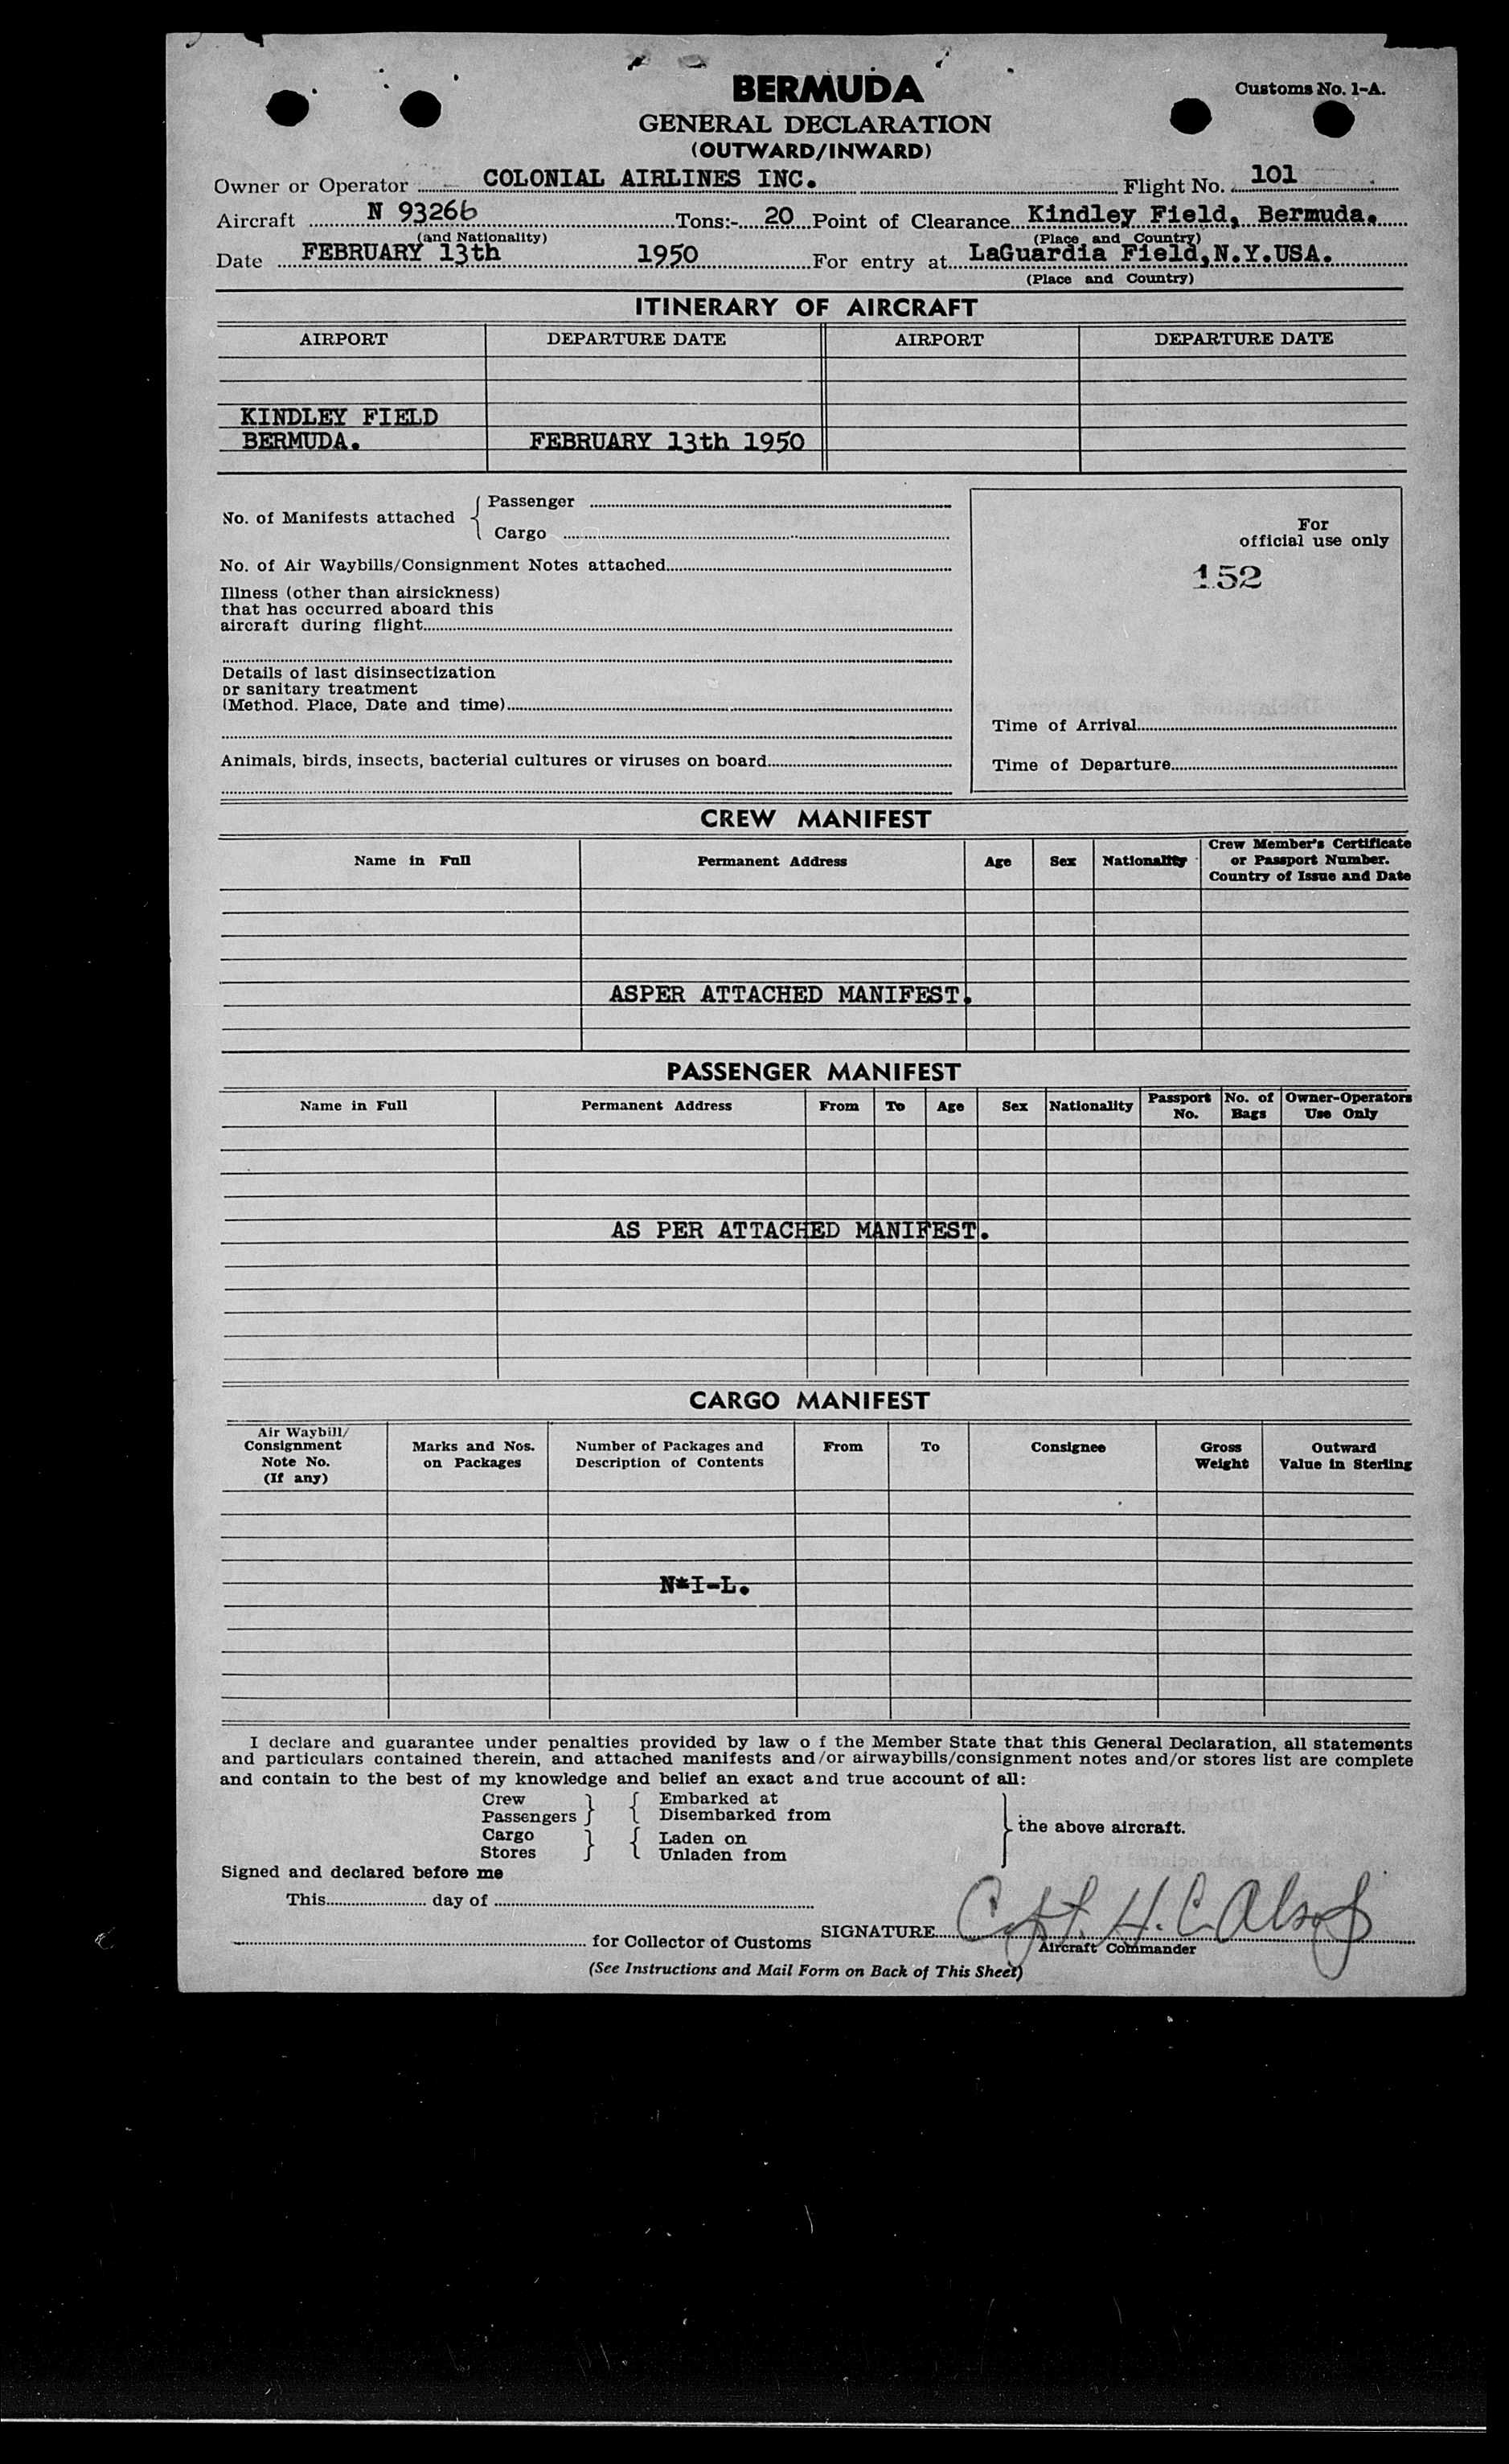 BERMUDA
Customs No. 1-A.
GENERAL DECLARATION
(OUTWARD/INWARD)
Owner or Operator COLONIAL AIRLINES INC. Flight No. 101
Aircraft N 93266 Tons:- 20 Point of Clearance Kindley Field, Bermuda.
(and Nationality) (Place and Country)
Date FEBRUARY 13th 1950 For entry at LaGuardia Field,N.Y.USA.
(Place and Country)
ITINERARY OF AIRCRAFT
AIRPORT DEPARTURE DATE AIRPORT DEPARTURE DATE
KINDLEY FIELD
BERMUDA. FEBRUARY 13th 1950
No. of Manifests attached { Passenger
Cargo
No. of Air Waybills/Consignment Notes attached
Illness (other than airsickness)
that has occurred aboard this
aircraft during flight
Details of last disinsectization
or sanitary treatment
(Method. Place, Date and time)
Animals, birds, insects, bacterial cultures or viruses on board
For
official use only
152
Time of Arrival
Time of Departure
CREW MANIFEST
Name in Full Permanent Address Age Sex Nationality Crew Member's Certificate
or Passport Number.
Country of Issue and Date
ASPER ATTACHED MANIFEST.
PASSENGER MANIFEST
Name in Full Permanent Address From To Age Sex Nationality Passport No. No. of Bags Owner-Operators Use Only
AS PER ATTACHED MANIFEST.
CARGO MANIFEST
Air Waybill/
Consignment
Note No.
(If any)
Marks and Nos.
on Packages
Number of Packages and
Description of Contents
From To Consignee
Gross
Weight
Outward
Value in Sterling
N*I-L.
I declare and guarantee under penalties provided by law o f the Member State that this General Declaration, all statements
and particulars contained therein, and attached manifests and/or airwaybills/consignment notes and/or stores list are complete
and contain to the best of my knowledge and belief an exact and true account of all:
Crew } { Embarked at
Passengers } { Disembarked from
Cargo } { Laden on
Stores } { Unladen from
} the above aircraft.
Signed and declared before me
This day of
for Collector of Customs SIGNATURE Capt. H. C. Alsop
Aircraft Commander
(See Instructions and Mail Form on Back of This Sheet)